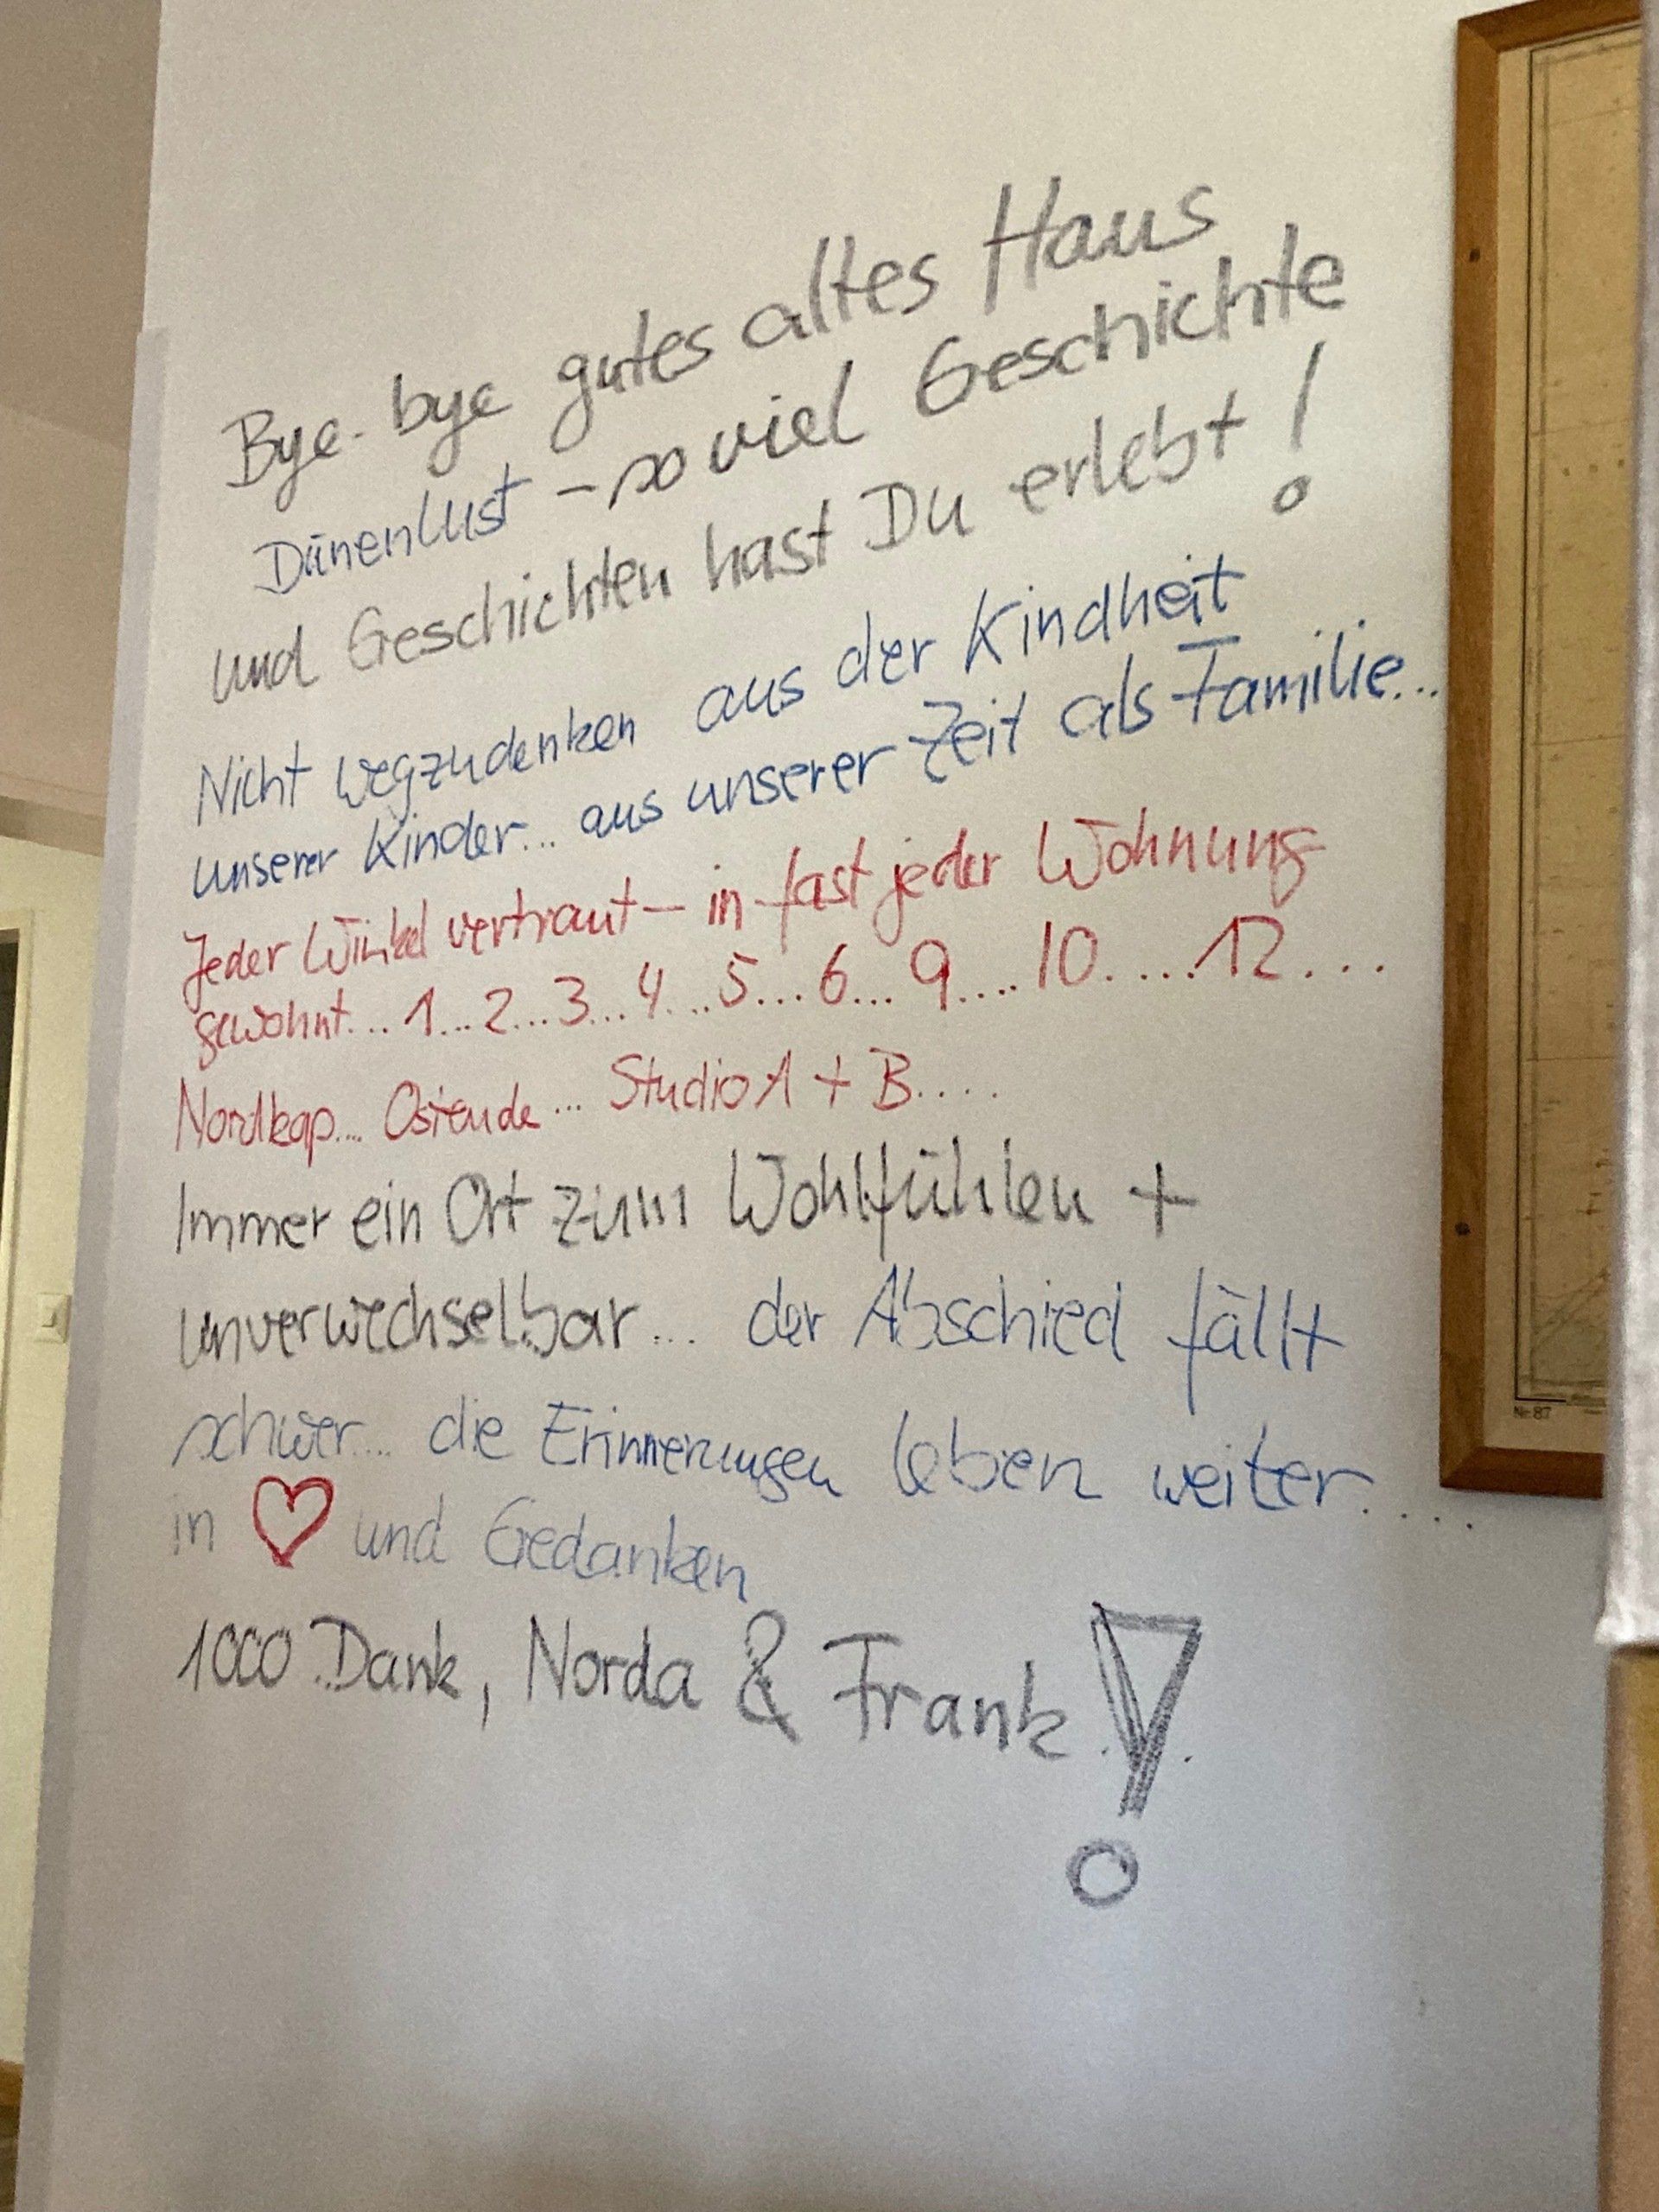 Bye-bye gutes altes Haus
Dünenlust – so viel Geschichte
und Geschichten hast Du erlebt!
Nicht wegzudenken aus der Kindheit
unserer Kinder... aus unserer Zeit als Familie...
Jeder Winkel vertraut – in fast jeder Wohnung
gewohnt... 1... 2... 3... 4... 5... 6... 9.... 10.... 12...
Nordkap... Ostende... Studio A + B....
Immer ein Ort zum Wohlfühlen +
unverwechselbar... der Abschied fällt
schwer.... die Erinnerungen leben weiter....
in ♡ und Gedanken
1000 Dank, Norda & Frank!
Nr. 87